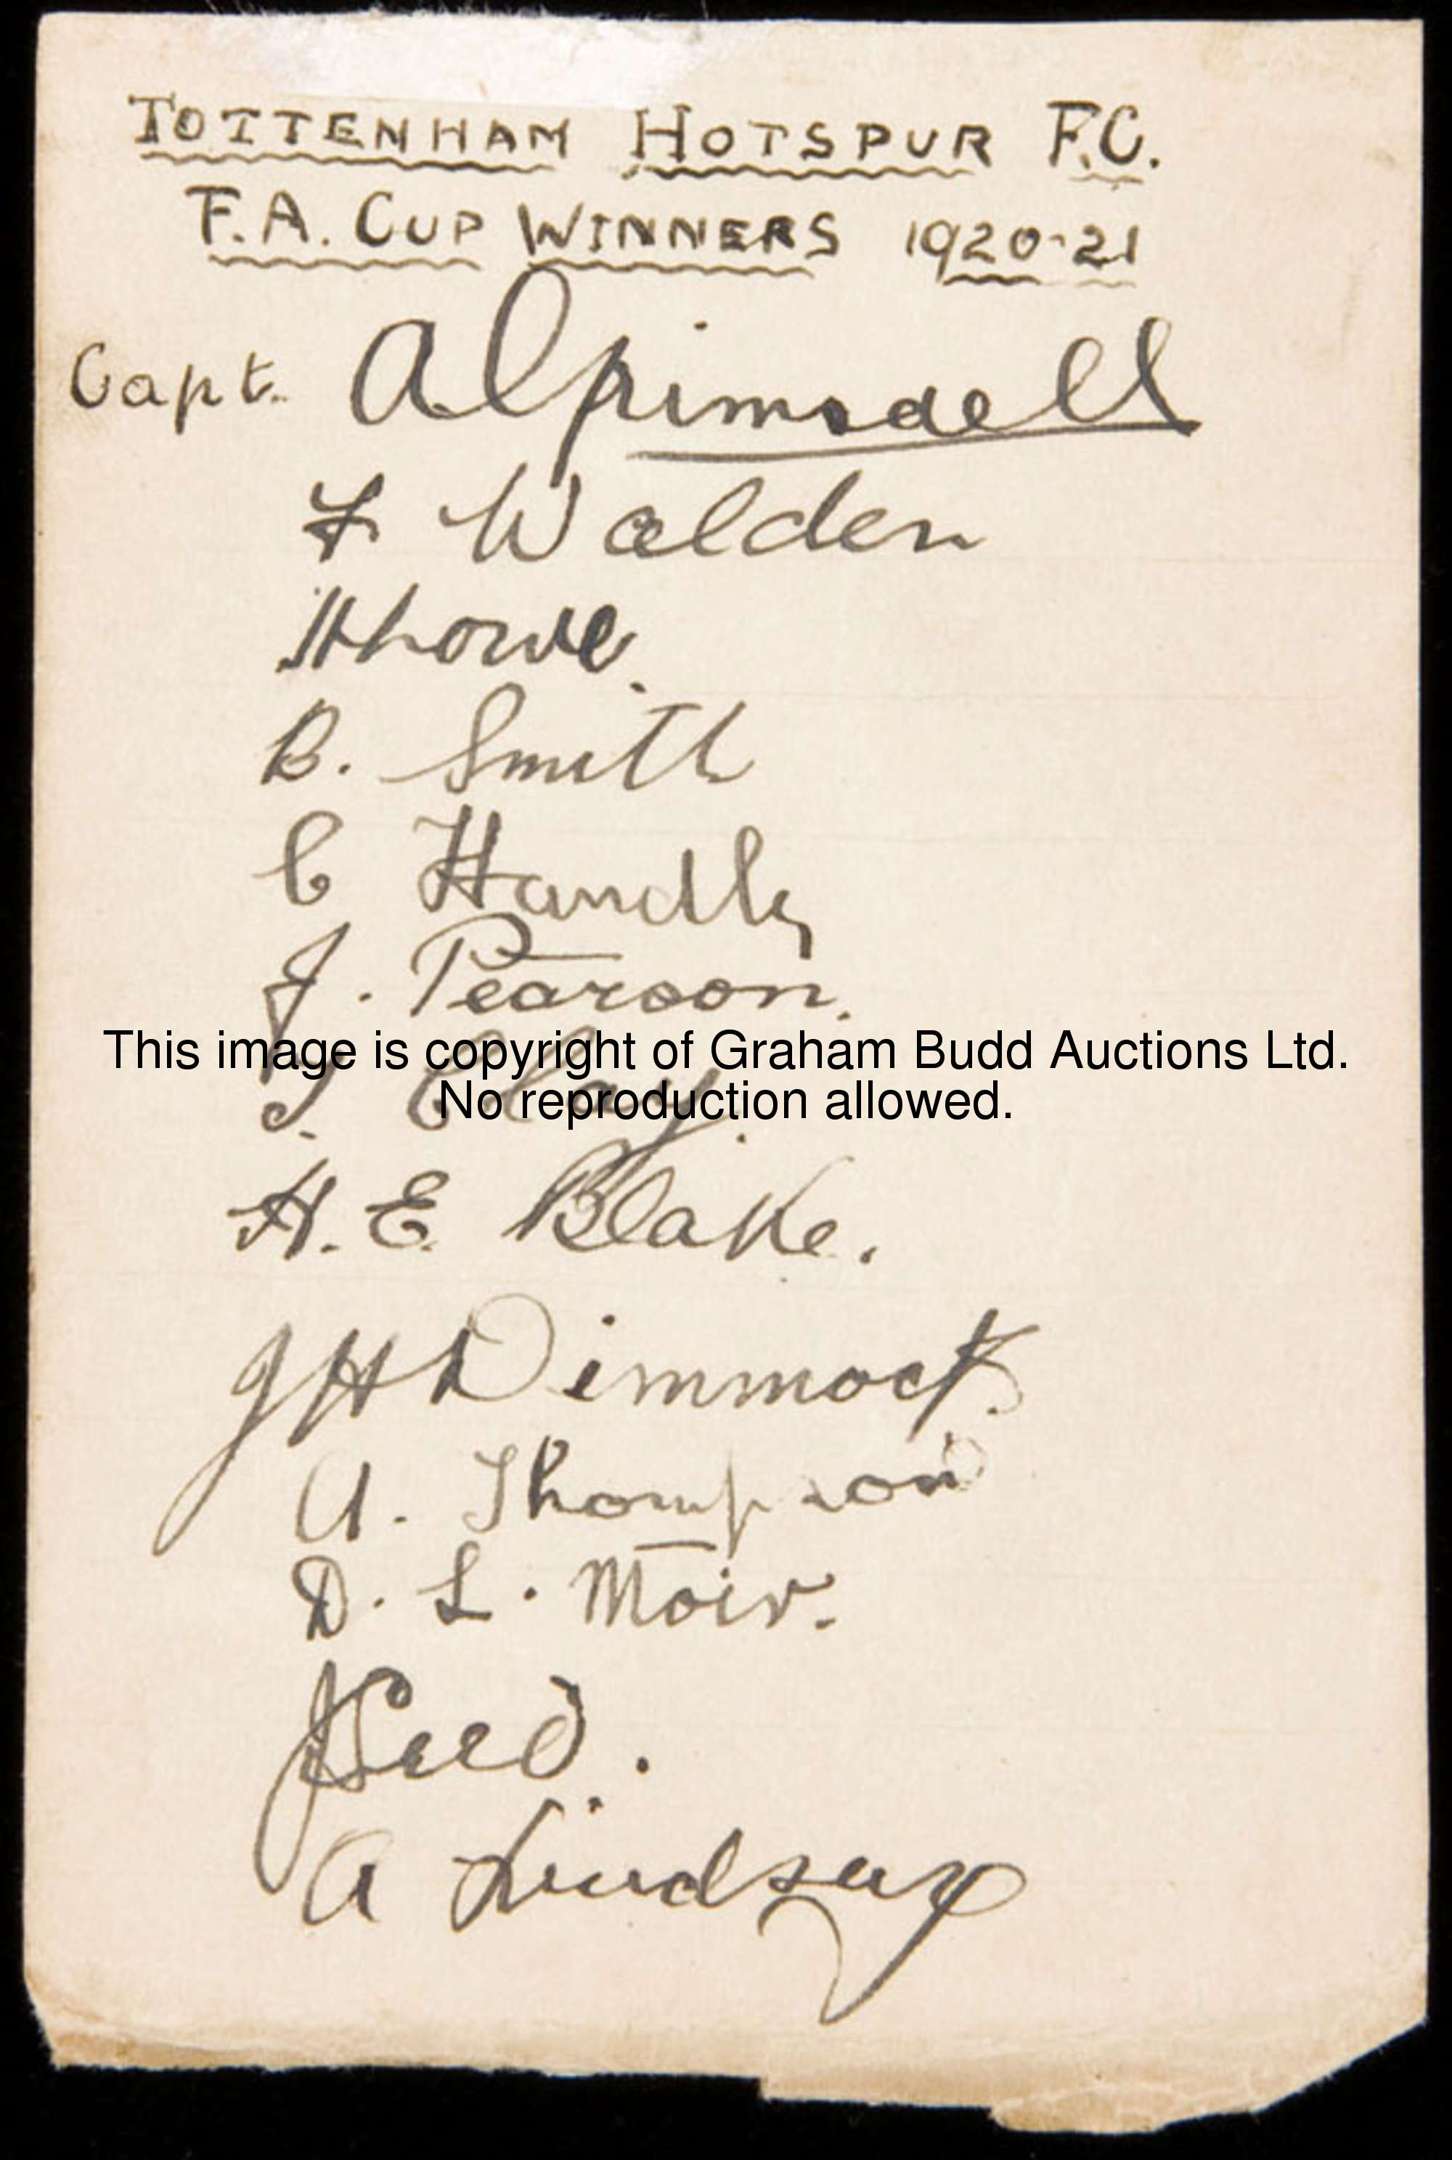 TOTTENHAM HOTSPUR F.C.
F.A. CUP WINNERS 1920-21
Capt. A Grimsdell
F Walden
H Lowe.
B. Smith
C Handly
J. Pearson.
This image is copyright of Graham Budd Auctions Ltd.
T. Clay.
No reproduction allowed.
H. E. Blake.
J H Dimmock.
A. Thompson
D. L. Moir.
J Seed.
A Lindsay